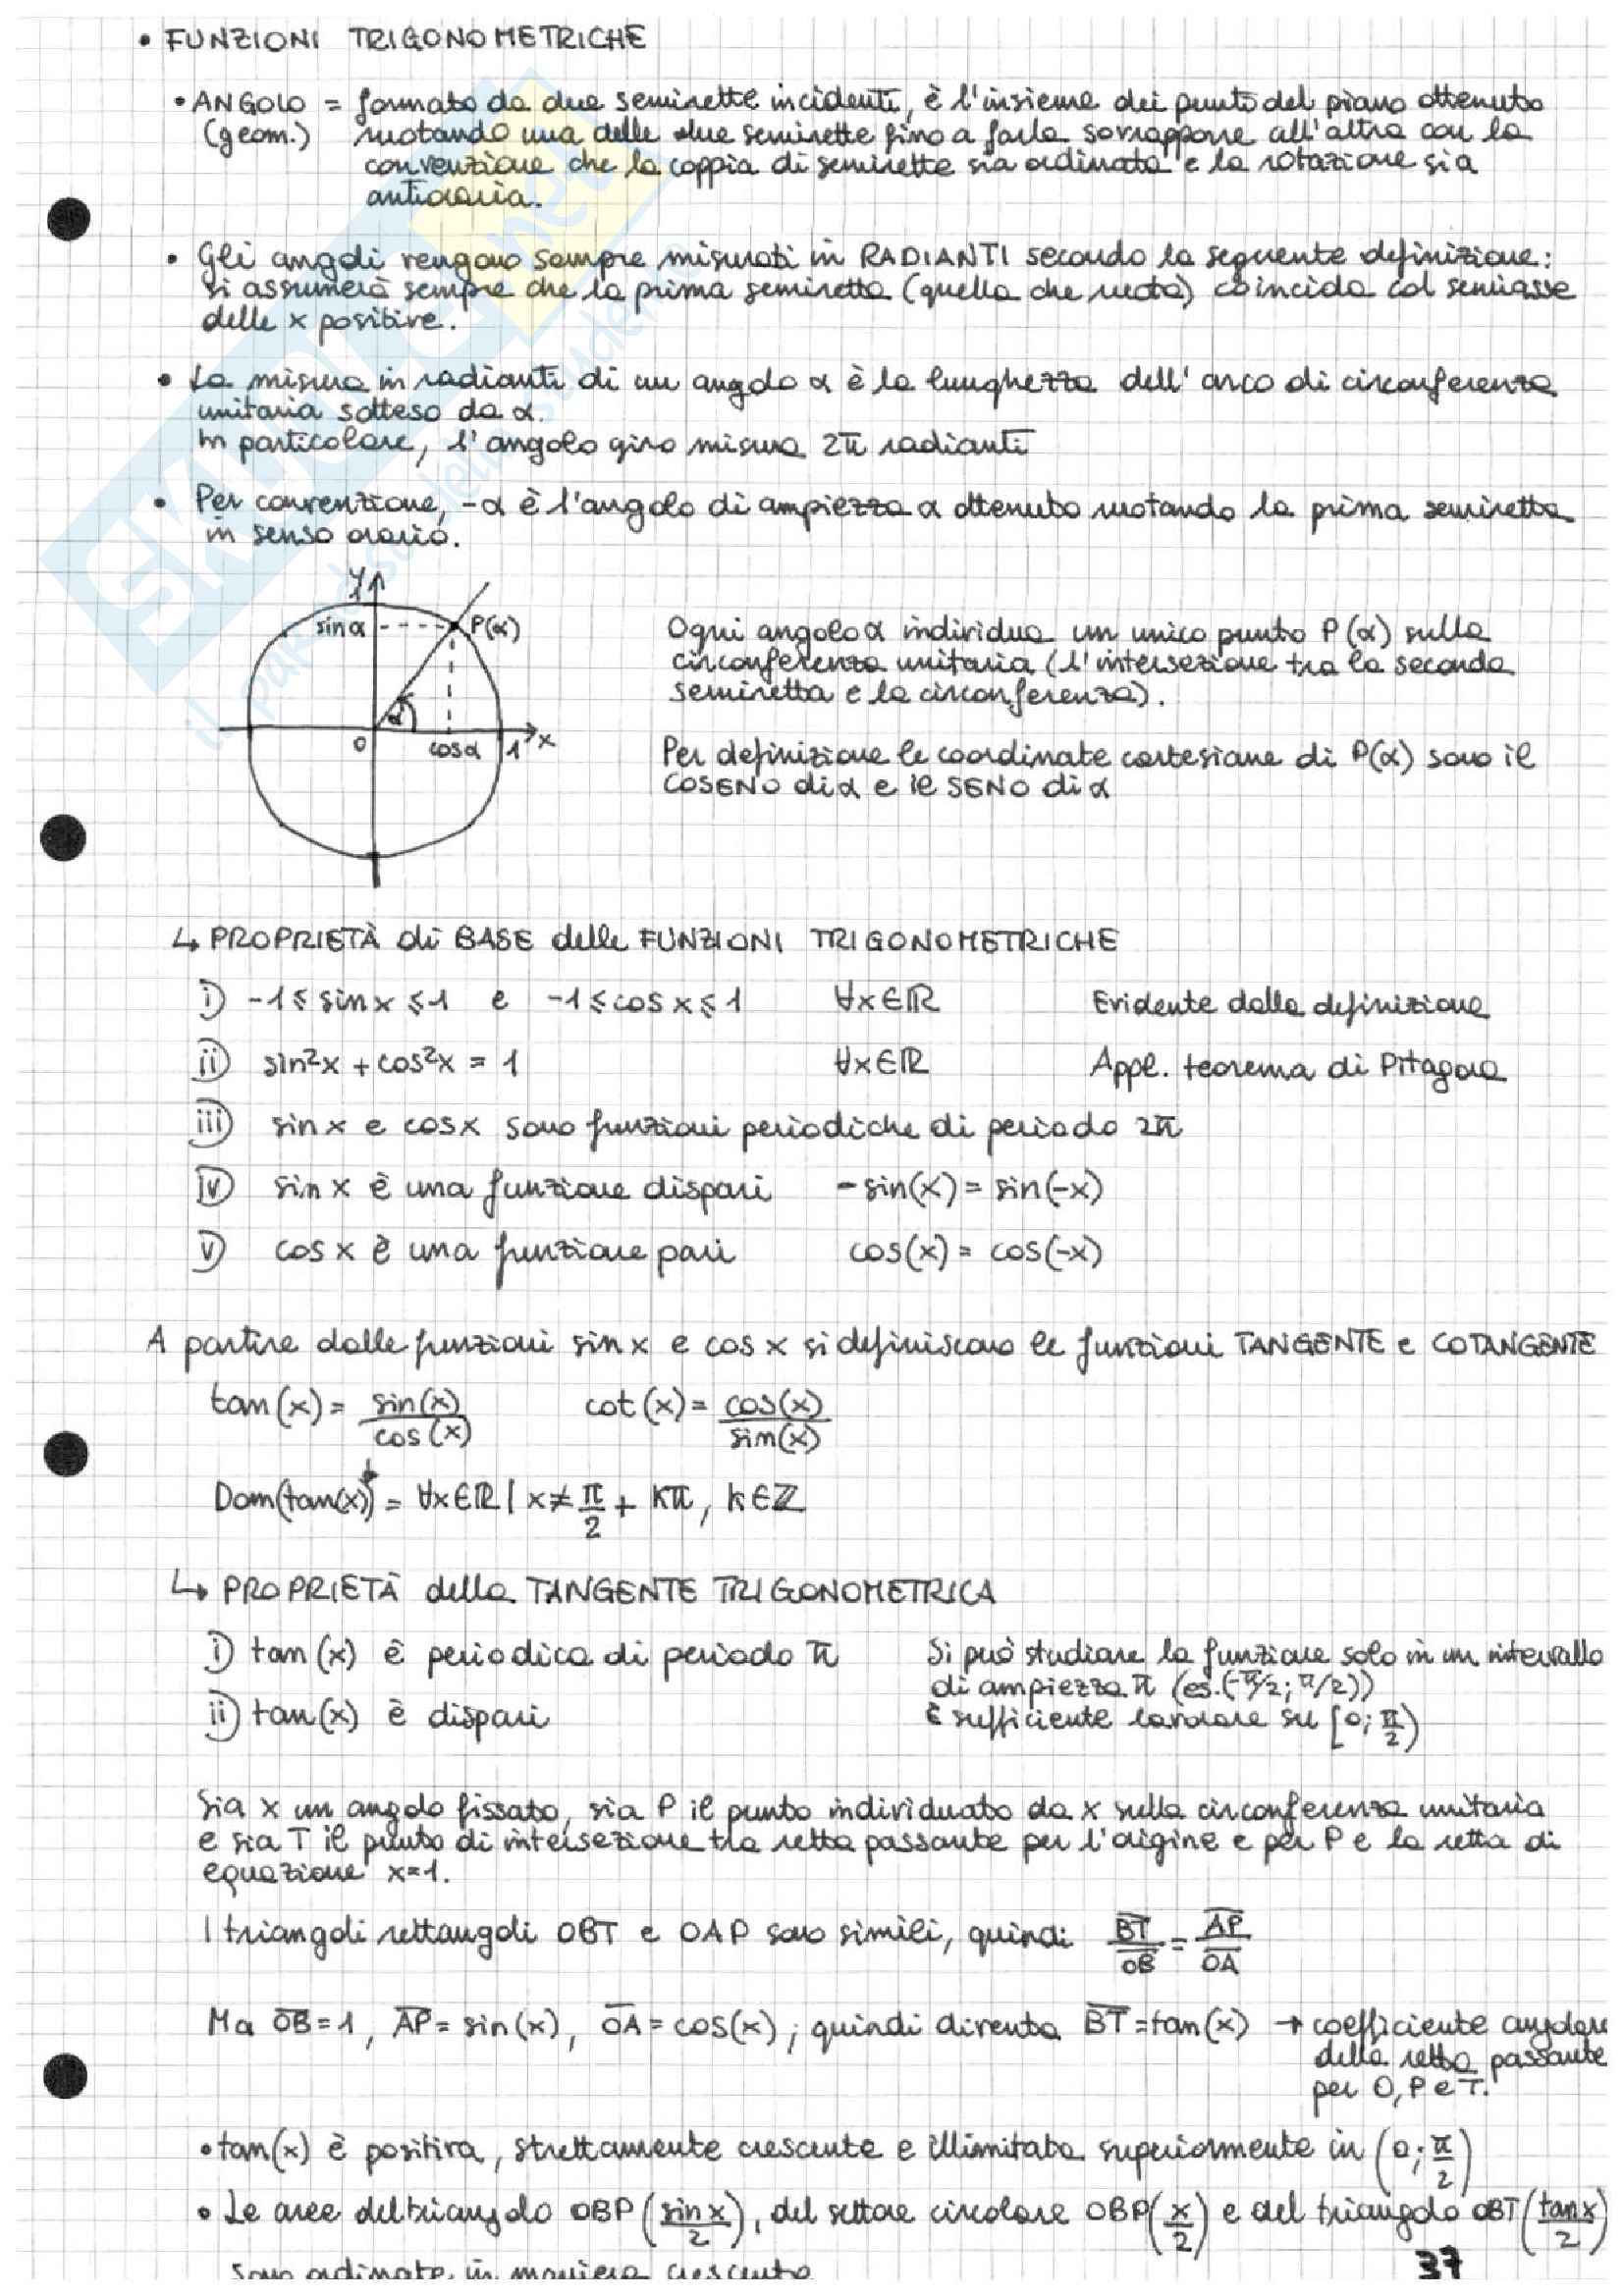 • FUNZIONI TRIGONOMETRICHE
• ANGOLO = formato da due semirette incidenti, è l'insieme dei punti del piano ottenuto
(geom.) ruotando una delle due semirette fino a farla sovrapporre all'altra con la
convenzione che la coppia di semirette sia ordinata e la rotazione sia
antioraria.
• Gli angoli vengono sempre misurati in RADIANTI secondo la seguente definizione:
si assumerà sempre che la prima semiretta (quella che ruota) coincida col semiasse
delle x positive.
• La misura in radianti di un angolo α è la lunghezza dell'arco di circonferenza
unitaria sotteso da α.
In particolare, l'angolo giro misura 2π radianti
• Per convenzione, -α è l'angolo di ampiezza α ottenuto ruotando la prima semiretta
in senso orario.
y
sinα P(α)
α
O cosα 1 x
Ogni angolo α individua un unico punto P(α) sulla
circonferenza unitaria (l'intersezione tra la seconda
semiretta e la circonferenza).
Per definizione le coordinate cartesiane di P(α) sono il
COSENO di α e il SENO di α
↳ PROPRIETÀ di BASE delle FUNZIONI TRIGONOMETRICHE
i) -1 ≤ sin x ≤ 1 e -1 ≤ cos x ≤ 1 ∀x∈ℝ Evidente dalla definizione
ii) sin²x + cos²x = 1 ∀x∈ℝ Appl. teorema di Pitagora
iii) sin x e cos x sono funzioni periodiche di periodo 2π
iv) sin x è una funzione dispari -sin(x) = sin(-x)
v) cos x è una funzione pari cos(x) = cos(-x)
A partire dalle funzioni sin x e cos x si definiscono le funzioni TANGENTE e COTANGENTE
tan(x) = sin(x)/cos(x) cot(x) = cos(x)/sin(x)
Dom(tan(x)) = ∀x∈ℝ | x ≠ π/2 + kπ, k∈ℤ
↳ PROPRIETÀ della TANGENTE TRIGONOMETRICA
i) tan(x) è periodica di periodo π Si può studiare la funzione solo in un intervallo
di ampiezza π (es. (-π/2; π/2))
ii) tan(x) è dispari È sufficiente lavorare su [0; π/2)
Sia x un angolo fissato, sia P il punto individuato da x sulla circonferenza unitaria
e sia T il punto di intersezione tra retta passante per l'origine e per P e la retta di
equazione x=1.
I triangoli rettangoli OBT e OAP sono simili, quindi BT/OB = AP/OA
Ma OB = 1, AP = sin(x), OA = cos(x); quindi diventa BT = tan(x) → coefficiente angolare
della retta passante
per O, P e T.
• tan(x) è positiva, strettamente crescente e illimitata superiormente in (0; π/2)
• Le aree del triangolo OBP (sin x/2), del settore circolare OBP (x/2) e del triangolo OBT (tan x/2)
sono ordinate in maniera crescente
37
SKUOLA.net
il paradiso dello studente